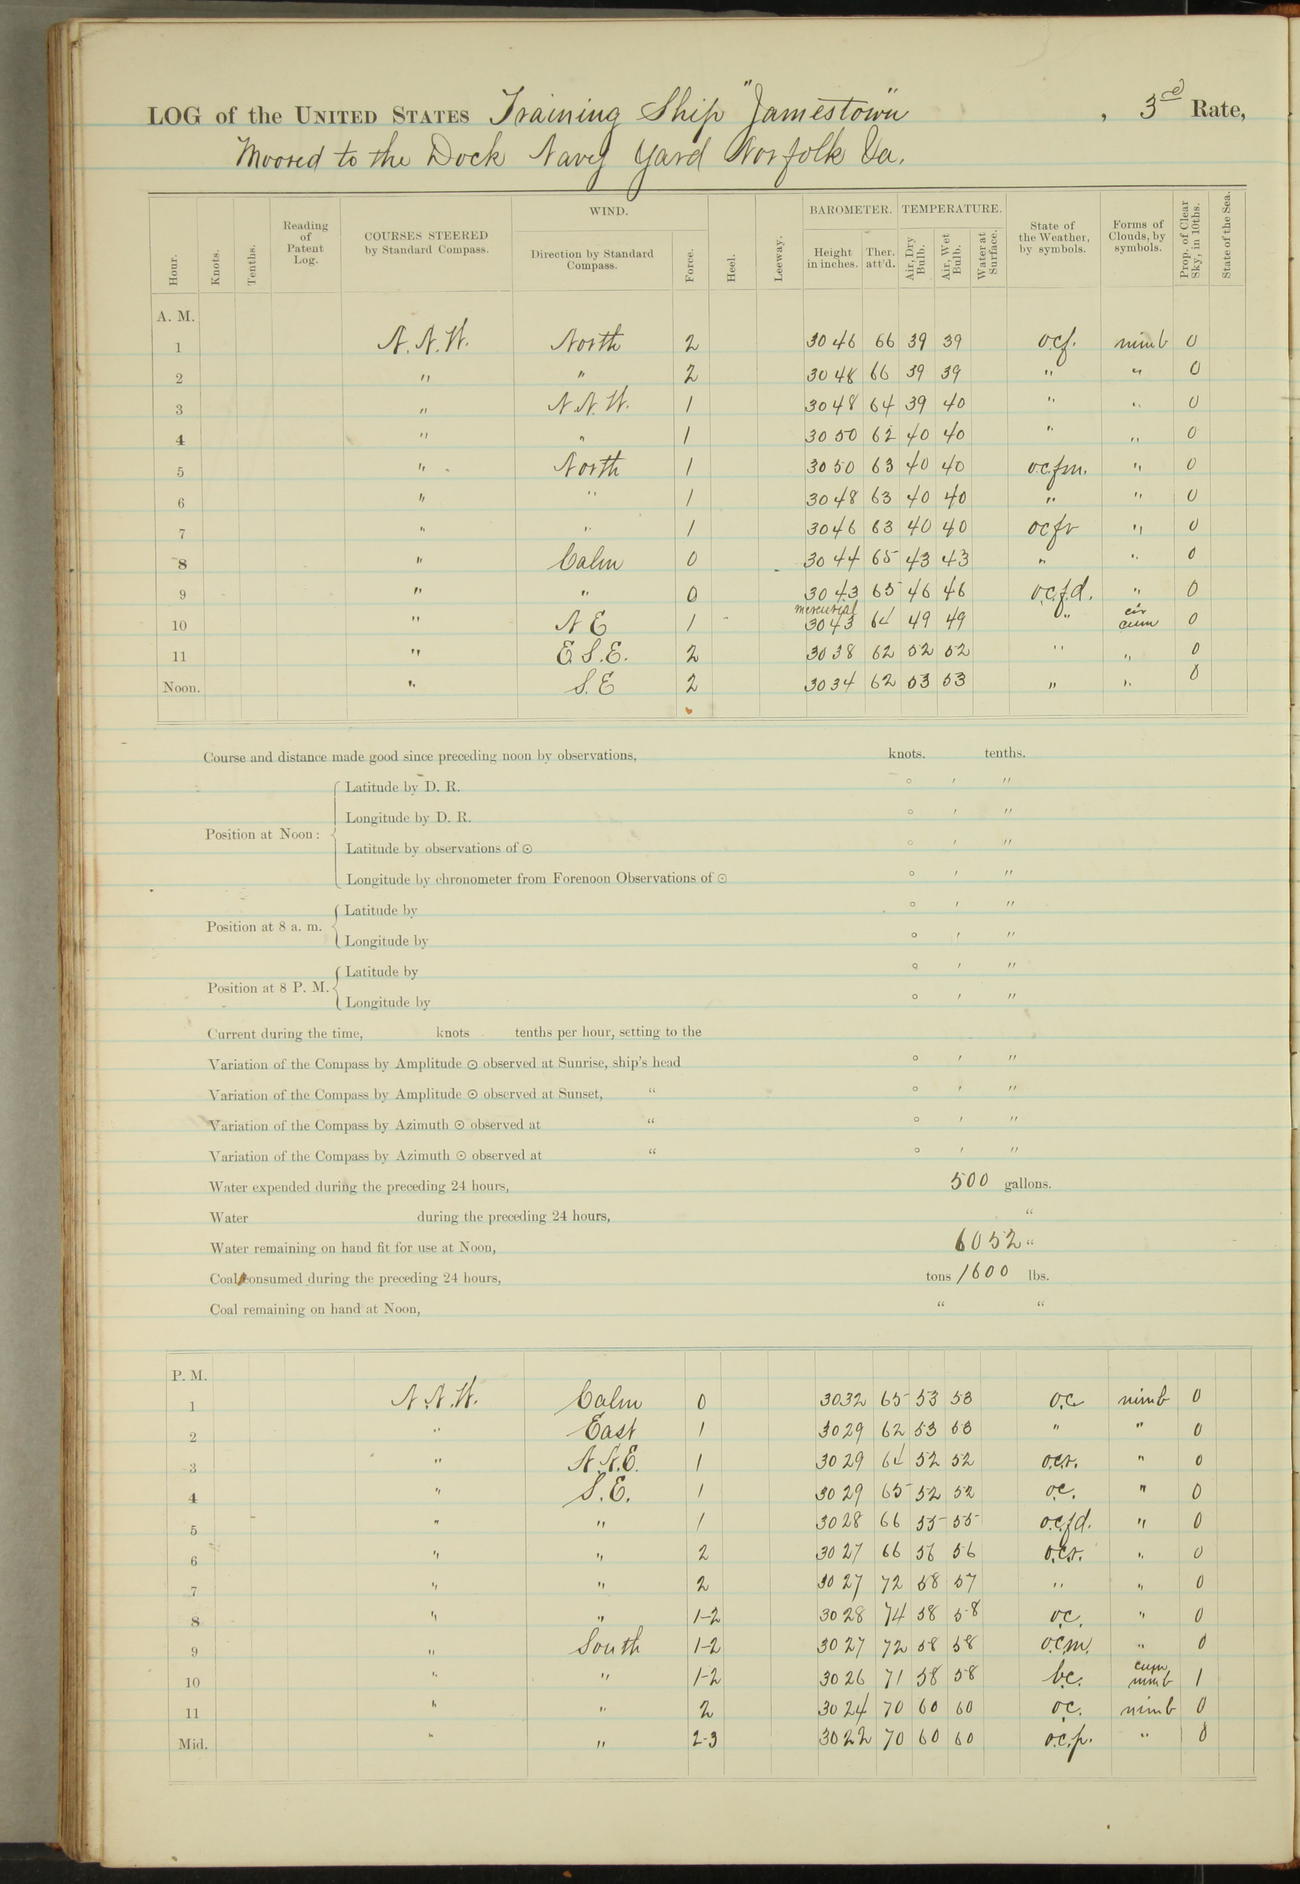 LOG of the UNITED STATES Training Ship "Jamestown", 3rd Rate,
Moored to the Dock Navy Yard Norfolk Va.
Hour. Knots. Tenths. Reading of Patent Log. COURSES STEERED by Standard Compass. WIND. Direction by Standard Compass. Force. Heel. Leeway. BAROMETER. Height in inches. Ther. att'd. TEMPERATURE. Air, Dry Bulb. Air, Wet Bulb. Water at Surface. State of the Weather, by symbols. Forms of Clouds, by symbols. Prop. of Clear Sky, in 10ths. State of the Sea.
A. M.
1 N.N.W. North 2 30 46 66 39 39 o.c.f. nimb 0
2 " " 2 30 48 66 39 39 " " 0
3 " N.N.W. 1 30 48 64 39 40 " " 0
4 " " 1 30 50 62 40 40 " " 0
5 " North 1 30 50 63 40 40 o.c.f.m. " 0
6 " " 1 30 48 63 40 40 " " 0
7 " " 1 30 46 63 40 40 ocfr " 0
8 " Calm 0 30 44 65 43 43 " " 0
9 " " 0 30 43 65 46 46 o.c.f.d. " 0
10 " N E 1 mercurial 30 43 64 49 49 " cir cum 0
11 " E.S.E. 2 30 38 62 52 52 " " 0
Noon. " S.E 2 30 34 62 53 53 " " 0
Course and distance made good since preceding noon by observations, knots. tenths.
Position at Noon: Latitude by D. R. ° ' "
Longitude by D. R. ° ' "
Latitude by observations of ⊙ ° ' "
Longitude by chronometer from Forenoon Observations of ⊙ ° ' "
Position at 8 a. m. Latitude by ° ' "
Longitude by ° ' "
Position at 8 P. M. Latitude by ° ' "
Longitude by ° ' "
Current during the time, knots tenths per hour, setting to the
Variation of the Compass by Amplitude ⊙ observed at Sunrise, ship's head ° ' "
Variation of the Compass by Amplitude ⊙ observed at Sunset, " ° ' "
Variation of the Compass by Azimuth ⊙ observed at " ° ' "
Variation of the Compass by Azimuth ⊙ observed at " ° ' "
Water expended during the preceding 24 hours, 500 gallons.
Water during the preceding 24 hours, "
Water remaining on hand fit for use at Noon, 6052 "
Coal consumed during the preceding 24 hours, tons 1600 lbs.
Coal remaining on hand at Noon, " "
P. M.
1 N.N.W. Calm 0 30 32 65 53 53 o.c. nimb 0
2 " East 1 30 29 62 53 53 " " 0
3 " N.N.E. 1 30 29 64 52 52 o.c.r. " 0
4 " S.E. 1 30 29 65 52 52 o.c. " 0
5 " " 1 30 28 66 55 55 o.c.f.d. " 0
6 " " 2 30 27 66 56 56 o.c.r. " 0
7 " " 2 30 27 72 58 57 " " 0
8 " " 1-2 30 28 74 58 58 o.c. " 0
9 " South 1-2 30 27 72 58 58 o.c.m. " 0
10 " " 1-2 30 26 71 58 58 b.c. cum nimb 1
11 " " 2 30 24 70 60 60 o.c. nimb 0
Mid. " " 2-3 30 22 70 60 60 o.c.p. " 0